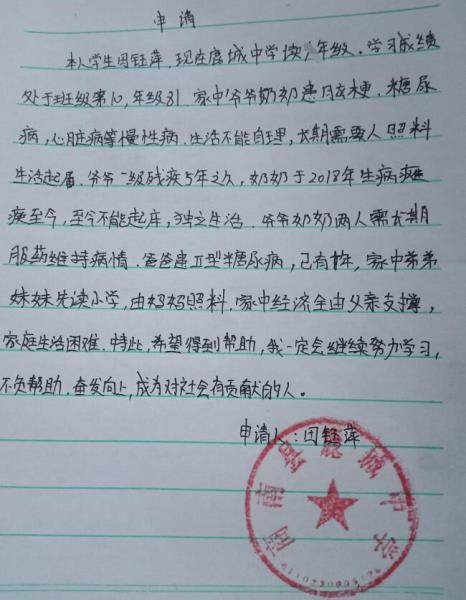 申请
本人学生田钰萍，现在鹿城中学读八年级、学习成绩
处于班级第10，年级31 家中爷爷奶奶患脑梗、糖尿
病，心脏病等慢性病、生活不能自理，长期需要人照料
生活起居、爷爷二级残疾5年之久，奶奶于2018年生病瘫
痪至今，至今不能起床，独立生活、爷爷奶奶两人需长期
服药维持病情、爸爸患Ⅱ型糖尿病，已有十年，家中弟弟
妹妹先读小学，由妈妈照料、家中经济全由父亲支撑，
家庭生活困难、特此，希望得到帮助，我一定会继续努力学习，
不负帮助、奋发向上，成为对社会有贡献的人。
申请人：田钰萍
商南县鹿城中学